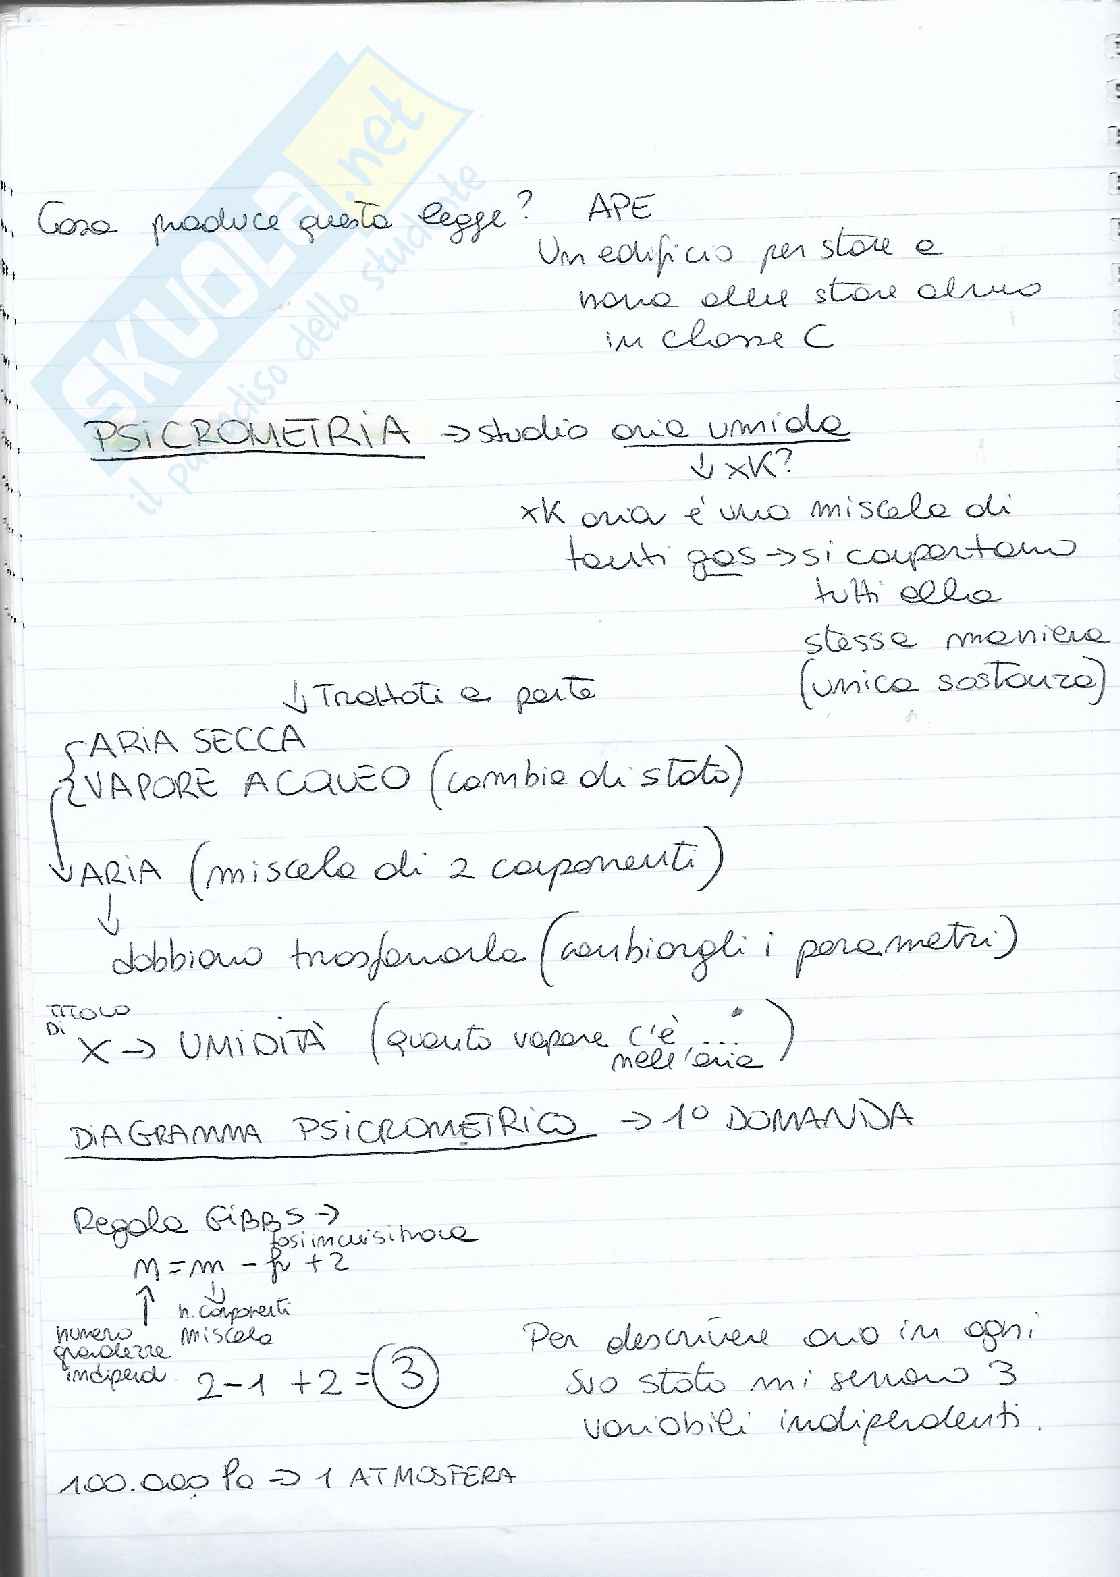 SKUOLA.net
il paradiso dello studente
Cosa produce questa legge? APE
Un edificio per stare a
norma deve stare almeno
in classe C
PSICROMETRIA → studio aria umida
↓ xK?
xK aria è una miscela di
tanti gas → si comportano
tutti alla
stessa maniera
(unica sostanza)
↓ Trattati a parte
ARIA SECCA
VAPORE ACQUEO (cambia di stato)
↓ ARIA (miscela di 2 componenti)
↓
dobbiamo trasformarla (cambiargli i parametri)
TITOLO
DI
X → UMIDITÀ (quanto vapore c'è ...
nell'aria)
DIAGRAMMA PSICROMETRICO → 1° DOMANDA
Regola GIBBS →
fasi in cui si trova
n = m - f + 2
n. componenti
miscela
numero
grandezze
indipend.
2 - 1 + 2 = 3
Per descrivere aria in ogni
suo stato mi servono 3
variabili indipendenti.
100.000 Pa → 1 ATMOSFERA